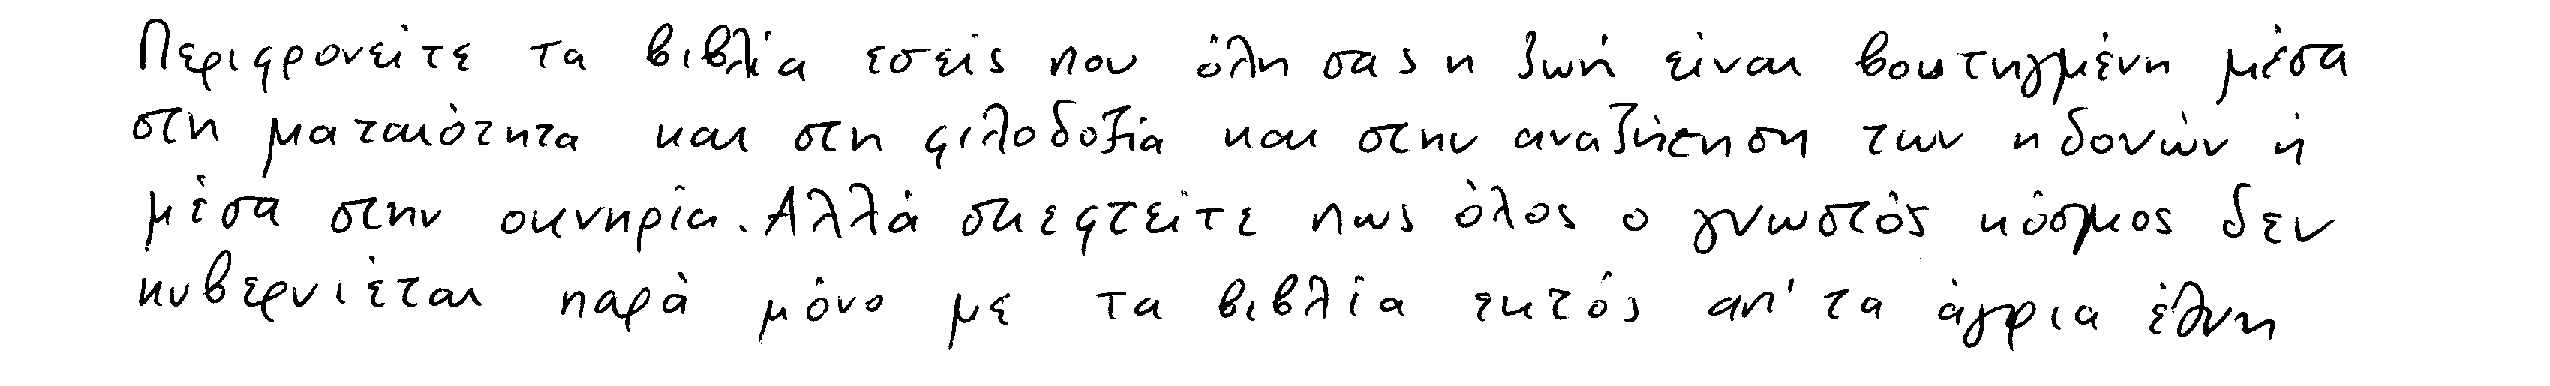 Περιφρονείτε τα βιβλία εσείς που όλη σας η ζωή είναι βουτηγμένη μέσα
στη ματαιότητα και στη φιλοδοξία και στην αναζήτηση των ηδονών ή
μέσα στην οκνηρία. Αλλά σκεφτείτε πως όλος ο γνωστός κόσμος δεν
κυβερνιέται παρά μόνο με τα βιβλία εκτός απ' τα άγρια έθνη